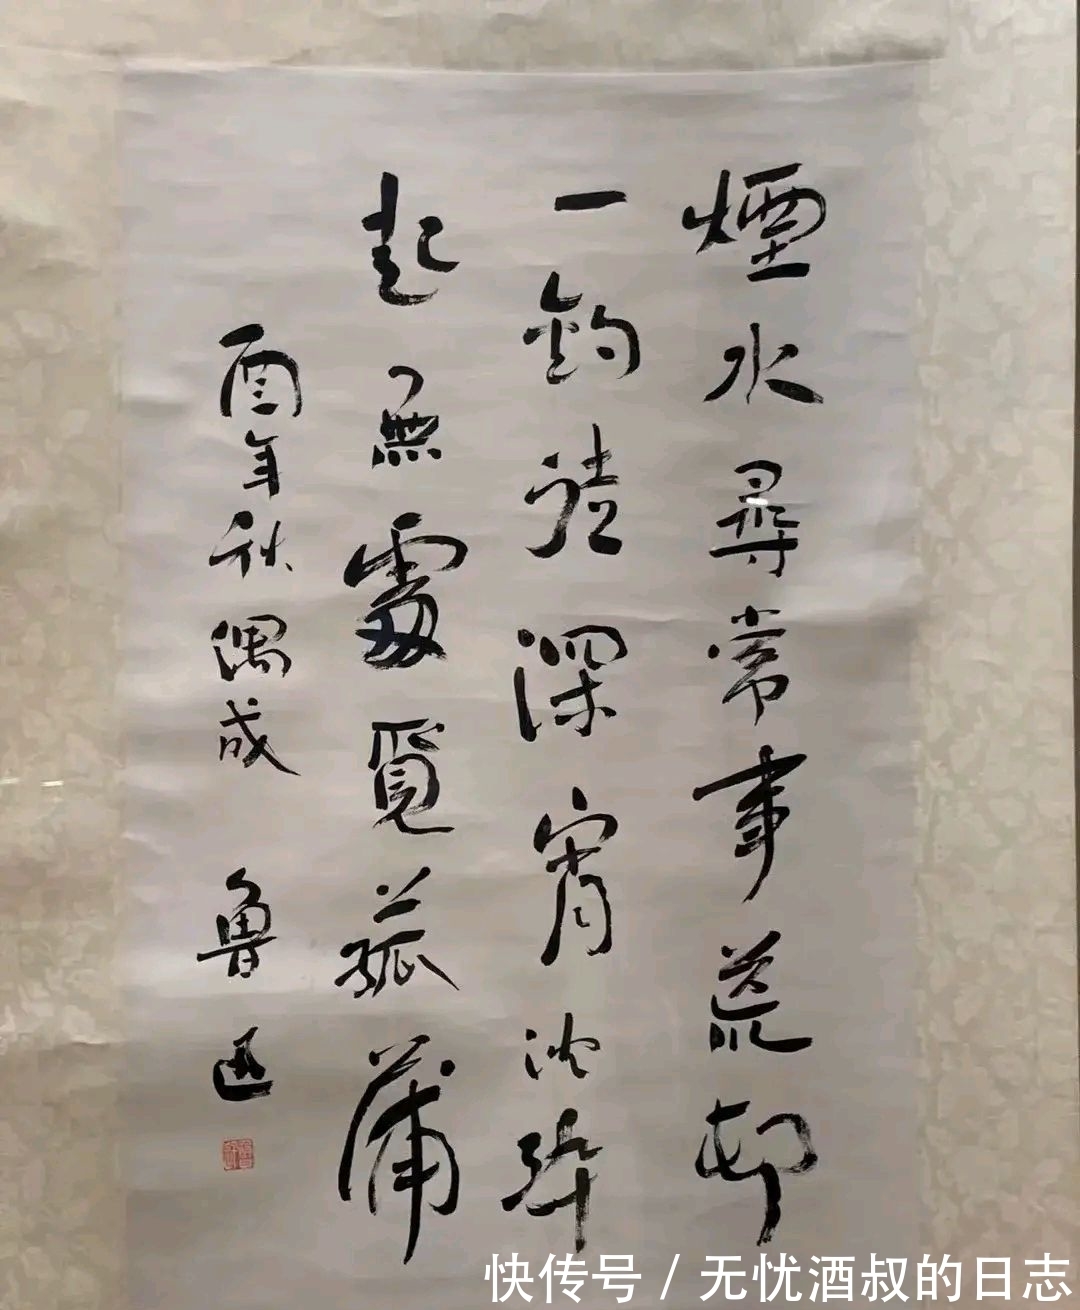 煙水尋常事荒邨
一釣徒深宵沈醉
起無處覓菰蒲
酉年秋偶成 魯迅
快传号 / 无忧酒叔的日志